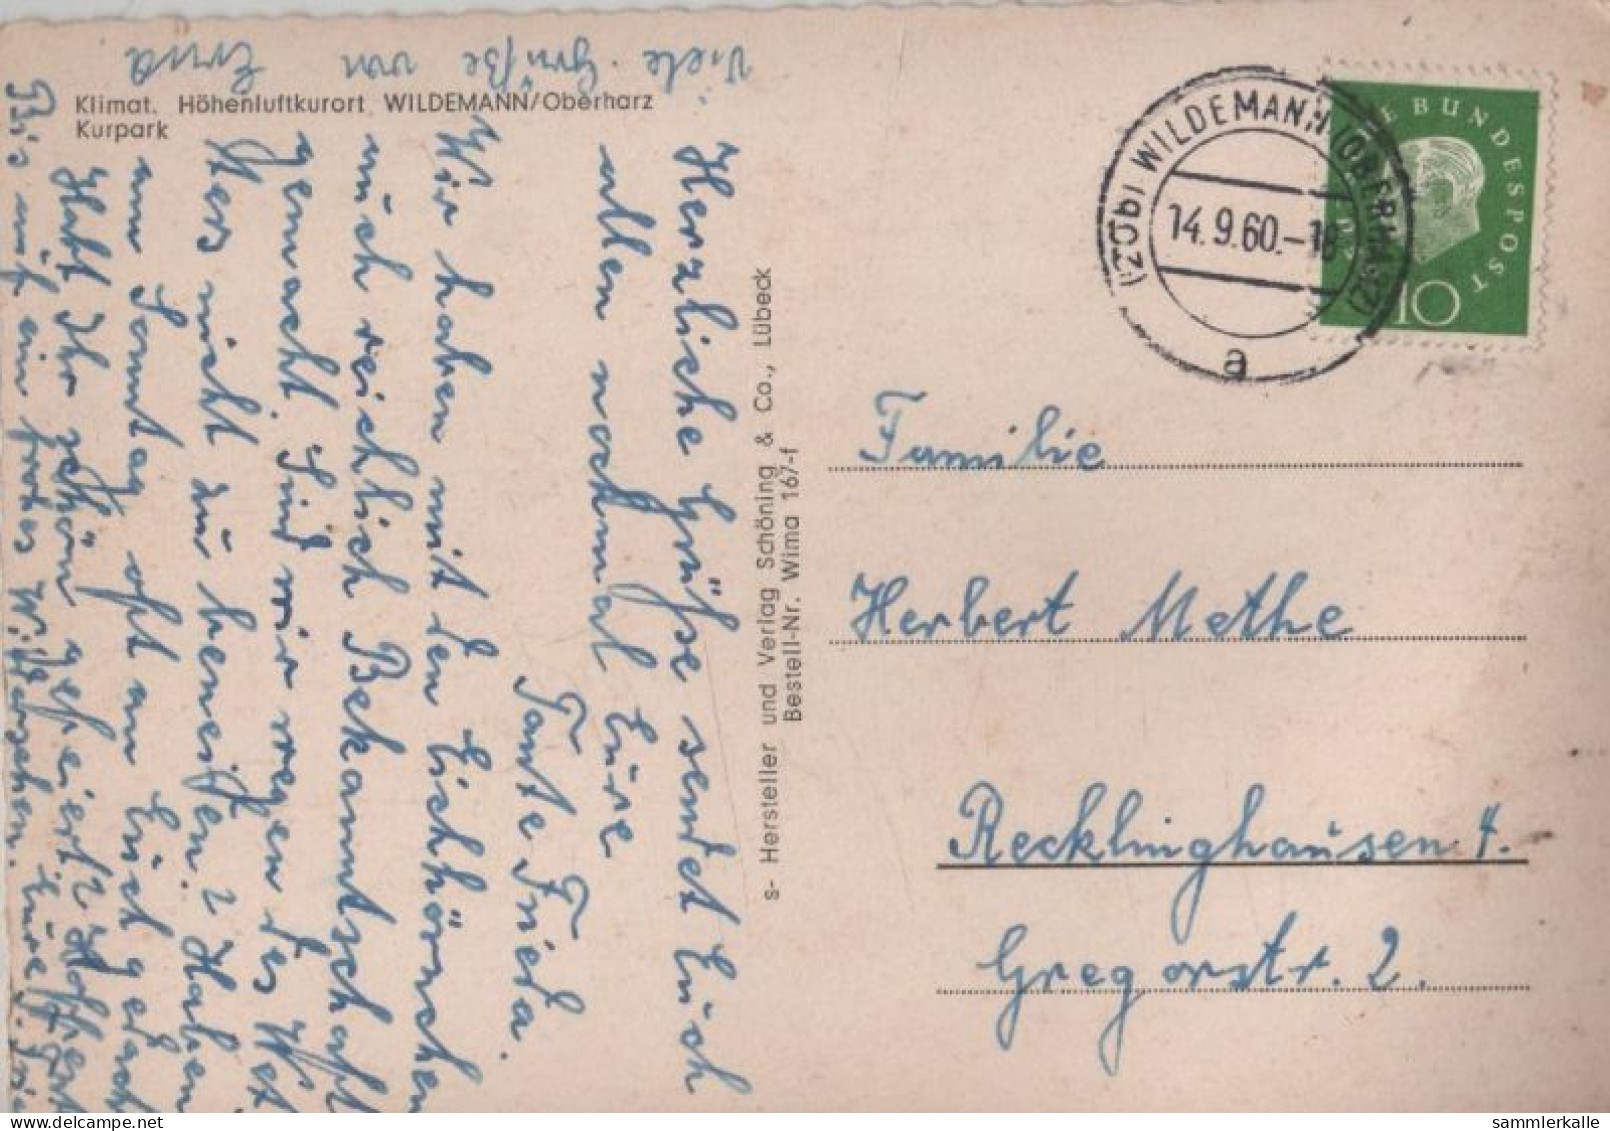 Viele Grüße von Erna
Klimat. Höhenluftkurort WILDEMANN/Oberharz
Kurpark
Herzliche Grüße sendet Euch
allen nochmal Eure
Tante Frieda.
Wir haben mit den Eichhörnchen
auch reichlich Bekanntschaft
gemacht. Sind wir wegen des Wet
ters nicht zu beneiden? Haben
am Sonntag oft an Euch gedacht
Habt Ihr schön gefeiert? Hoffent
Bis auf ein frohes Wiedersehen. Eure
s- Hersteller und Verlag Schöning & Co., Lübeck
Bestell-Nr. Wima 167-f
(20b) WILDEMANN (OBERHARZ)
14.9.60.-18
a
DEUTSCHE BUNDESPOST
10
Familie
Herbert Methe
Recklinghausen 4.
Gregorstr. 2.
sammlerkalle